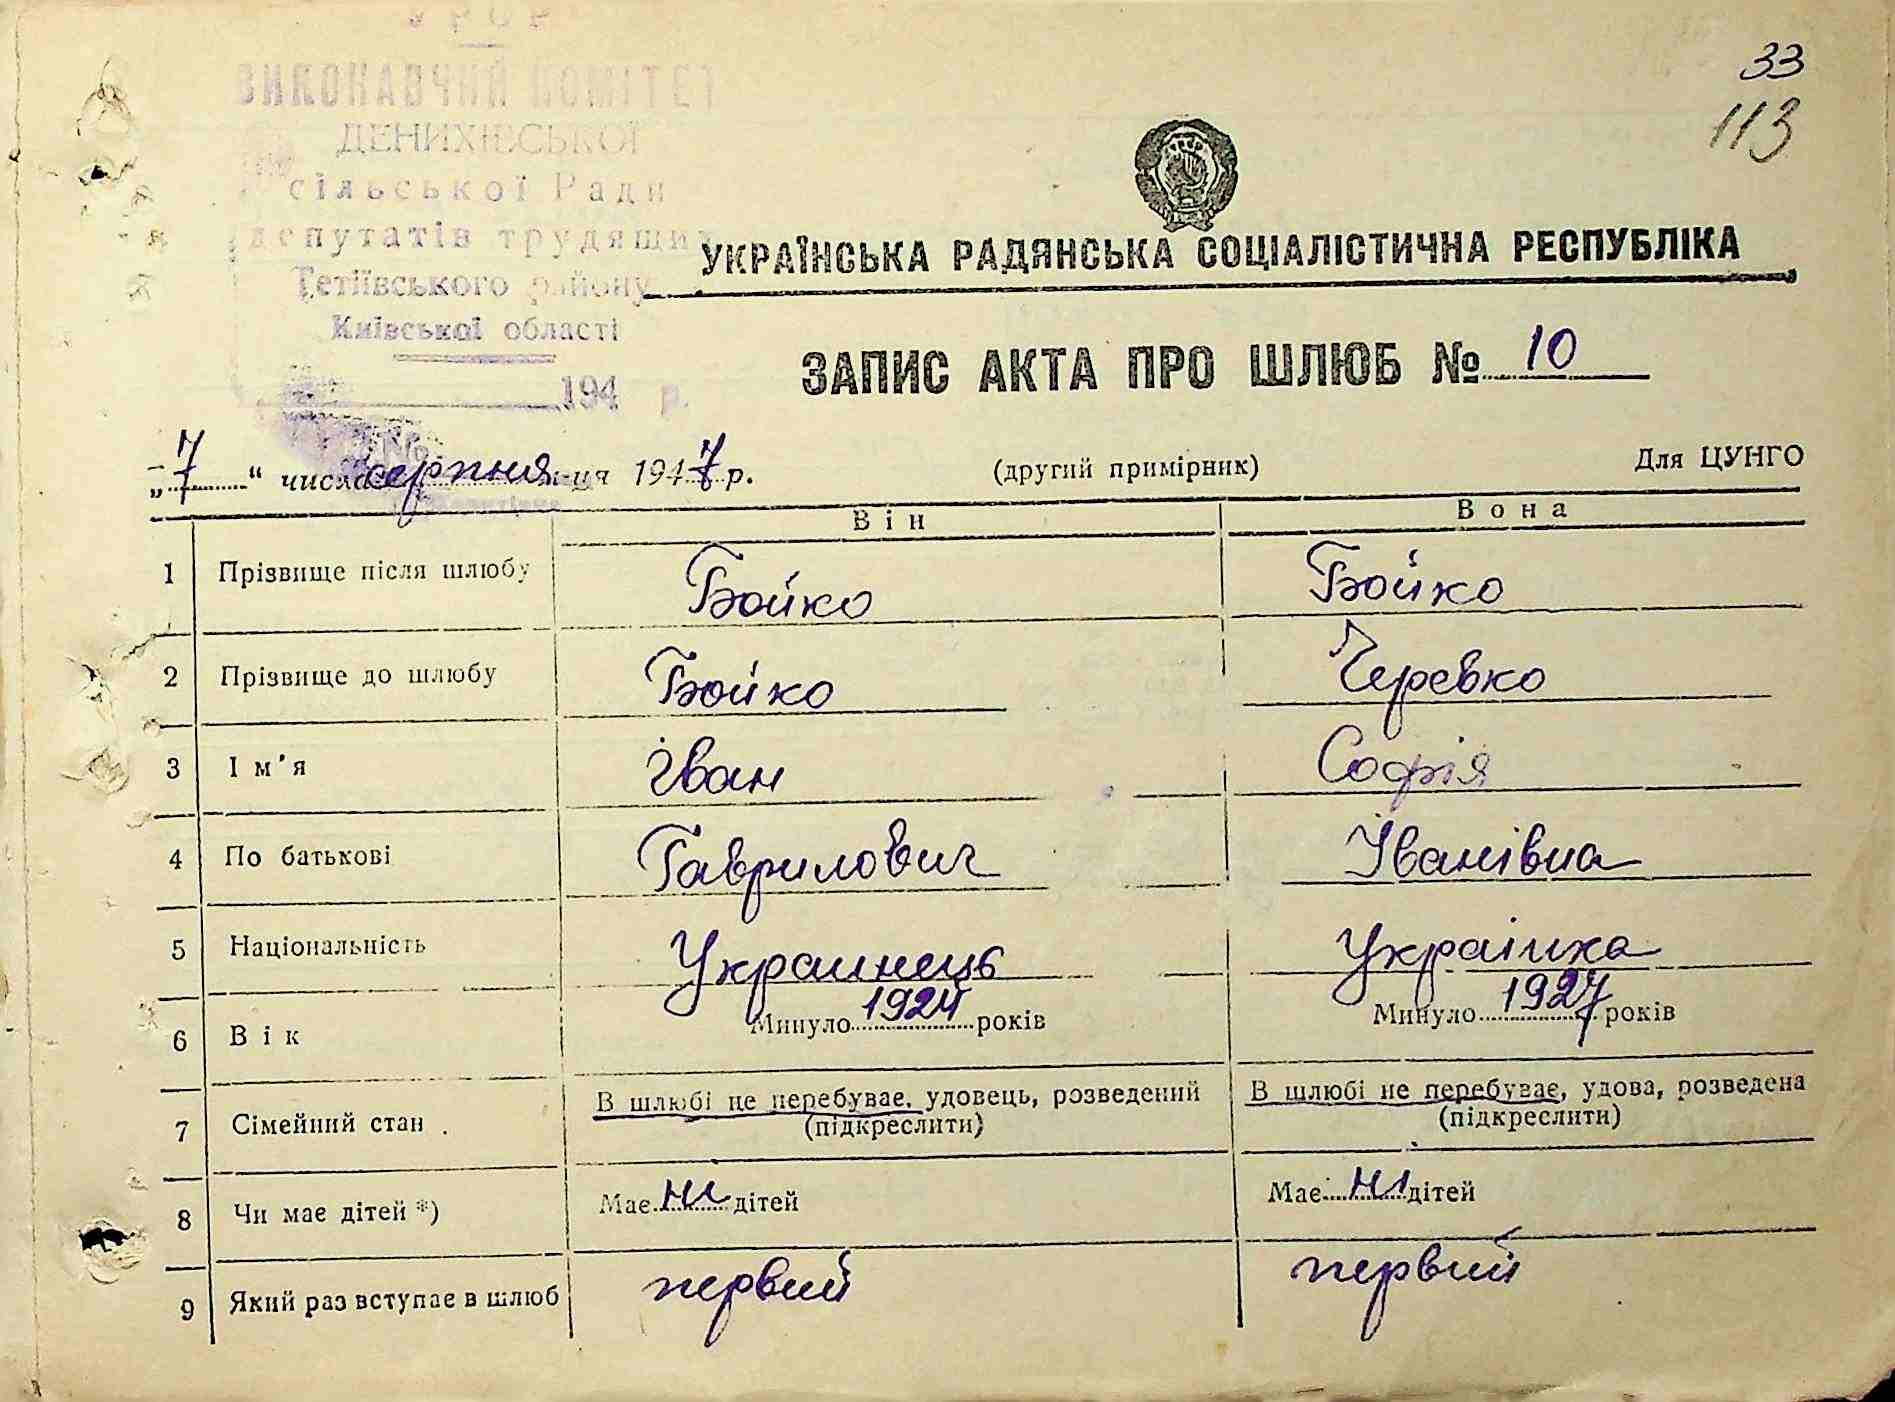 33
113
УРСР
ВИКОНАВЧИЙ КОМІТЕТ
ДЕНИХІВСЬКОЇ
сільської Ради
депутатів трудящих
Тетіївського району
Київської області
194 р.
№
УКРАЇНСЬКА РАДЯНСЬКА СОЦІАЛІСТИЧНА РЕСПУБЛІКА
ЗАПИС АКТА ПРО ШЛЮБ № 10
„7“ числа серпня м-ця 1947 р. (другий примірник) Для ЦУНГО
Він Вона
1 Прізвище після шлюбу Бойко Бойко
2 Прізвище до шлюбу Бойко Черевко
3 Ім'я Іван Софія
4 По батькові Гаврилович Іванівна
5 Національність Украинець Украінка
6 Вік Минуло 1924 років Минуло 1927 років
7 Сімейний стан В шлюбі не перебуває, удовець, розведений В шлюбі не перебуває, удова, розведена
(підкреслити) (підкреслити)
8 Чи має дітей *) Має ні дітей Має ні дітей
9 Який раз вступає в шлюб первий первий